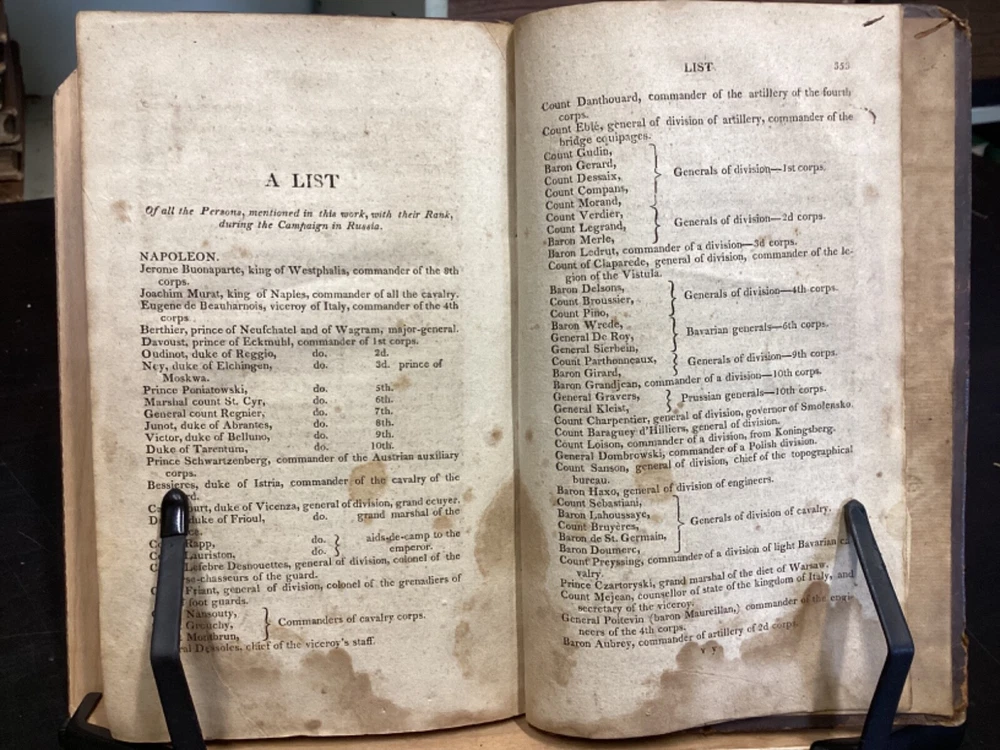 A LIST
Of all the Persons, mentioned in this work, with their Rank,
during the Campaign in Russia.
NAPOLEON.
Jerome Buonaparte, king of Westphalia, commander of the 8th
corps.
Joachim Murat, king of Naples, commander of all the cavalry.
Eugene de Beauharnois, viceroy of Italy, commander of the 4th
corps.
Berthier, prince of Neufchatel and of Wagram, major-general.
Davoust, prince of Eckmuhl, commander of 1st corps.
Oudinot, duke of Reggio, do. 2d.
Ney, duke of Elchingen, do. 3d. prince of
Moskwa.
Prince Poniatowski, do. 5th.
Marshal count St. Cyr, do. 6th.
General count Regnier, do. 7th.
Junot, duke of Abrantes, do. 8th.
Victor, duke of Belluno, do. 9th.
Duke of Tarentum, do. 10th.
Prince Schwartzenberg, commander of the Austrian auxiliary
corps.
Bessieres, duke of Istria, commander of the cavalry of the
rd.
urt, duke of Vicenza, general of division, grand ecuyer.
duke of Frioul, do. grand marshal of the
Rapp, do. } aids-de-camp to the
Lauriston, do. } emperor.
Lefebre Desnouettes, general of division, colonel of the
se-chasseurs of the guard.
Friant, general of division, colonel of the grenadiers of
foot guards.
Nansouty,
Grouchy, } Commanders of cavalry corps.
Montbrun,
al Dessoles, chief of the viceroy's staff.
LIST. 353
Count Danthouard, commander of the artillery of the fourth
corps.
Count Eblé, general of division of artillery, commander of the
bridge equipages.
Count Gudin,
Baron Gerard, } Generals of division—1st corps.
Count Dessaix,
Count Compans,
Count Morand,
Count Verdier, } Generals of division—2d corps.
Count Legrand,
Baron Merle,
Baron Ledrut, commander of a division—3d corps.
Count of Claparede, general of division, commander of the le-
gion of the Vistula.
Baron Delsons, } Generals of division—4th corps.
Count Broussier,
Count Pino,
Baron Wrede, } Bavarian generals—6th corps.
General De Roy,
General Sierbein,
Count Parthonneaux, } Generals of division—9th corps.
Baron Girard,
Baron Grandjean, commander of a division—10th corps.
General Gravers, } Prussian generals—10th corps.
General Kleist,
Count Charpentier, general of division, governor of Smolensko.
Count Baraguey d'Hilliers, general of division.
Count Loison, commander of a division, from Koningsberg.
General Dombrowski, commander of a Polish division.
Count Sanson, general of division, chief of the topographical
bureau.
Baron Haxo, general of division of engineers.
Count Sebastiani,
Baron Lahoussaye, } Generals of division of cavalry.
Count Bruyères,
Baron de St. Germain,
Baron Doumerc,
Count Preyssing, commander of a division of light Bavarian ca-
valry.
Prince Czartoryski, grand marshal of the diet of Warsaw.
Count Mejean, counsellor of state of the kingdom of Italy, and
secretary of the viceroy.
General Poitevin (baron Maureillan,) commander of the engi-
neers of the 4th corps.
Baron Aubrey, commander of artillery of 2d corps.
Y y